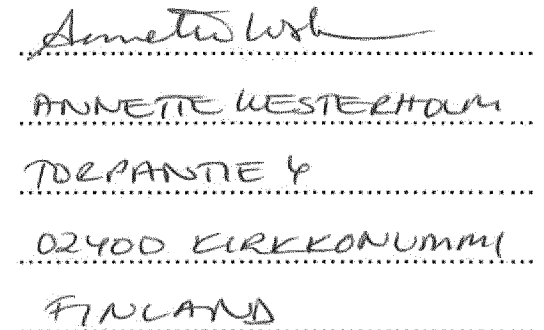 Annette
ANNETTE WESTERHOLM
TORPANTIE 4
02400 KIRKKONUMMI
FINLAND